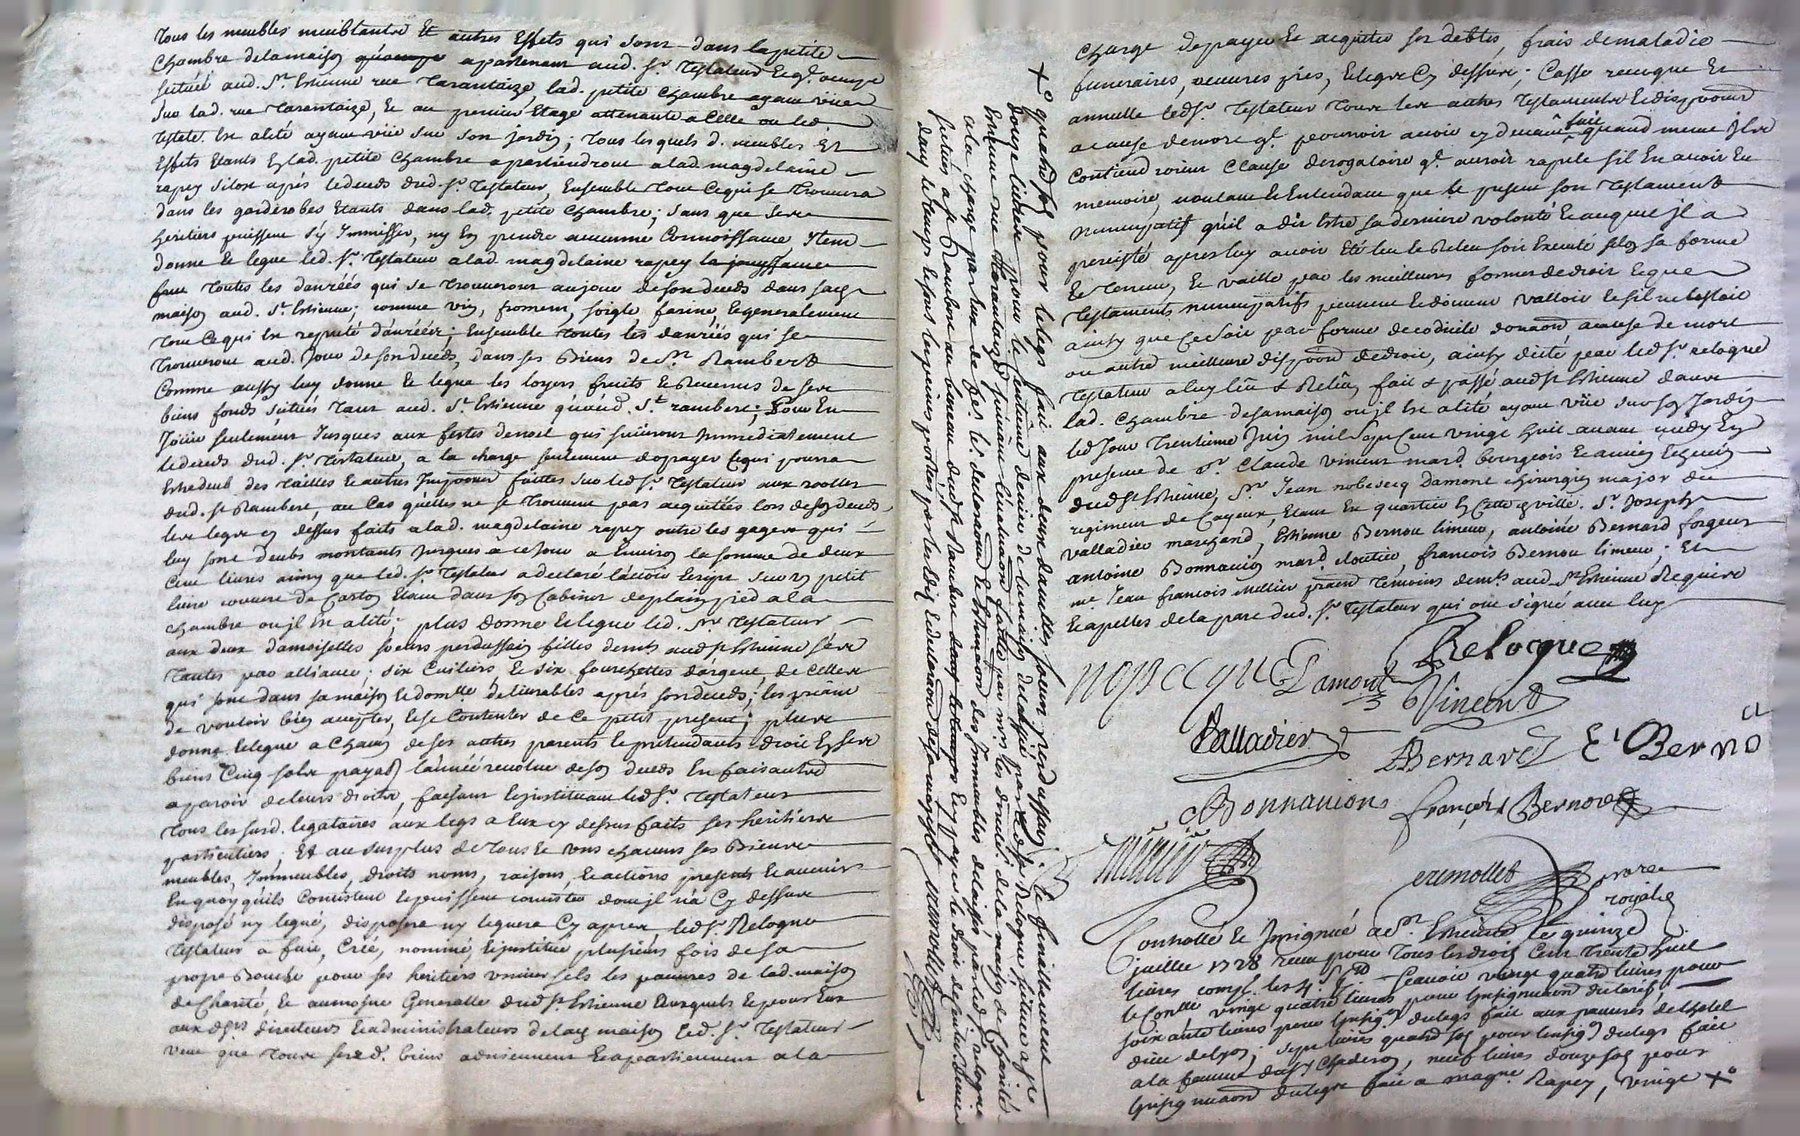 Tous les meubles meublants Et autres Effets qui sont dans la petite
chambre de la maison apartenant aud. Sr. Testateur
scituée aud. St. Estienne rue Tarantaize, lad. petite chambre ayant vüe
sur lad. rue Tarantaize, Et au premier Etage attenante a Celle ou led.
testat. Est alité ayant vüe sur son jardin; Tous lesquels d. meubles Et
Effets Etants En lad. petite chambre apartiendront a lad. magdelaine
rapey sitost aprés le deceds dud. Sr. Testateur, Ensemble tout ce qui se trouvera
dans les garderobes Etants dans lad. petite chambre; sans que ses
heritiers puissent s'y Immisser, ny En prendre aucune Connoissance Item
donne Et legue led. Sr. Testateur a lad. magdelaine rapey la jouyssance
Toutes les danrées qui se trouveront au jour de son deceds dans sa
maison aud. St. Estienne; comme vin, froment, soigle, farine, Et generalement
tout ce qui Est reputé danrées; Ensemble toutes les danrées qui se
trouveront aud. jour de son deceds, dans ses Biens de St. Rambert
Comme aussy luy donne Et legue les loyers fruits Et Revenus de ses
biens fonds scitués tant aud. St. Estienne qu'aud. St. rambert; Pour En
Joüir seulement Jusques aux festes de noel qui suivront Immediatement
le deceds dud. Sr. Testateur, a la charge seulement de payer ce qui pourra
Estre deub des tailles Et autres Impositions faittes sur led. Sr. Testateur aux rolles
dud. St. Rambert, au Cas qu'elles ne se trouvent pas acquitées lors de son deceds,
les legs cy dessus faits a lad. magdelaine rapey outre les gages qui
luy sont deubs montants Jusques a ce jour a Environ la somme de deux
Cent livres ainsy que led. Sr. Testateur a declaré l'avoir Escript sur un petit
livre couvert de Carton Etant dans son Cabinet de plain pied a la
chambre ou il Est alité; plus donne Et legue led. Sr. Testateur
aux deux damoiselles soeurs perdussain filles demts. aud. St. Estienne ses
tantes par alliance, six Cuilliers Et six fourchettes d'argent, de Celles
qui sont dans sa maison Et domlle delivrables aprés son deceds; les priant
de vouloir bien accepter, Et se Contenter de Ce petit present; plus
donne Et legue a Chacun de ses autres parents Et pretendants droit En ses
biens Cinq sols payab. l'année revolue de son deceds En faisant
aparoir de leurs droits, faisant Et instituant led. Sr. Testateur
tous les susd. legataires aux legs a Eux cy dessus faits ses heritiers
particuliers; Et au surplus de tous Et uns chacuns ses Biens
meubles, Immeubles, droits noms, raisons, Et actions presents Et avenir
En quoy qu'ils Consistent Et puissent consister dont il n'a Cy dessus
disposé ny legué, disposera ny leguera Cy aprés led. Sr. Relogue
Testateur a fait, Créé, nommé, Et institué plusieurs fois de sa
propre Bouche pour ses heritiers universels les pauvres de lad. maison
de Charité Et aumosne Generalle dud. St. Estienne Auxquels Et pour Eux
aux Srs. directeurs Et administrateurs de lad. maison led. Sr. Testateur
veut que tous sesd. biens adviennent Et apartiennent a la
+ quatre sols pour le legs fait aux deux damlles soeurs perdussain; Et finallement
douze livres pour le Centiéme denier de la maison delaissée par led. Sr. Relogue scituée a St.
Estienne rue tarantaize suivant l'evaluation faitte par mrs. les direct. de la maison de Charité
a la charge par Eux de fe. la declaration Et Estimation des Immeubles delaissés par led. Sr. relogue
scitués a St. Rambert au bureau dud. St. Rambert Et y payer le droit de Centiéme denier
dans le temps Et sous les peines portées par les Edits Et declarations de sa majesté
charge de payer Et acquiter ses debtes, frais de maladie
funeraires, oeuvres pies, Et legs Cy dessus; Casse revoque Et
annulle led. Sr. Testateur tous les autres Testaments Et dispositions
a cause de mort ql. pourroit avoir cy devant fait quand meme Ils
Contiendroient Clause derogatoire ql. auroit rapelé s'il En avoit Eu
memoire, voulant Et Entendant que le present son Testament
nuncupatif qu'il a dit Estre sa derniere volonté Et auquel il a
persisté apres luy avoir Eté leu Et Releu soit Executé selon sa forme
Et teneur, Et vaille par les meilleures formes de droit Et que
Testaments nuncupatifs peuvent Et doivent valloir Et s'il ne valloit
ainsy que ce soit par forme de codicile donation a cause de mort
ou autre meilleure disposition de droit, ainsy dicté par led. Sr. relogue
Testateur a luy leu & Releu, fait & passé aud. St. Estienne dans
lad. Chambre de sa maison ou il Est alité ayant vüe sur son Jardin
led. Jour Trentiéme Juin mil sept cent vingt huit avant midy En
presence de Sr. Claude vincent mard. bourgeois Et ancien Echevin
dud. St. Estienne, Sr. Jean nobecq damont chirurgien major du
regiment de Cayeux, Etant En quartier En Cette ville. Sr. Joseph
valladier marchand, Estienne Bernou limeur, antoine Bernard forgeur
antoine Bonnavion mard. cloutier, francois Bernou limeur; Et
me. Jean francois mellier praticien Témoins demts. aud. St. Estienne Requis
Et apellés de la part dud. Sr. Testateur qui ont signé avec luy
Relogue
Damont
Vincent
Valladier
ABernard
E Berno
Bonnavion
françois Bernou
notre
royal
Controllé Et Insignué a St. Estienne Le quinze
juillet 1728 receu pour tous les droits Cent trente huit
livres compr. les 4. s. Scavoir vingt quatre livres pour
le Conlle vingt quatre livres pour Insignuation
soixante livres pour Insign. du legs fait aux pauvres de l'hotel
dieu de lyon; sept livres quatre sols pour Insign. du legs fait
a la femme du Sr. Chaderon, neuf livres douze sols pour
Insignuation du legs fait a magne. Rapey, vingt +